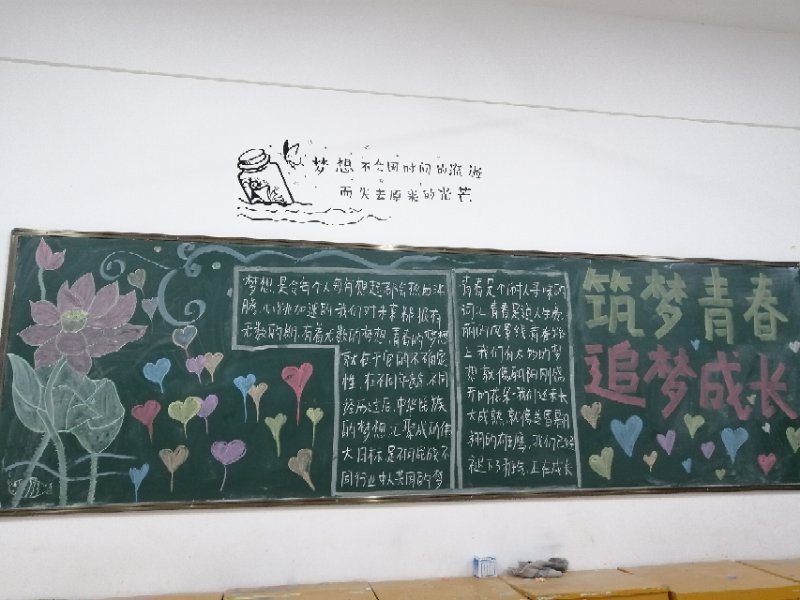 梦想不会因时间的流逝
而失去原来的光芒
梦想是令每个人每每想起都会热血沸
腾,心跳加速的我们对未来都抱有
无数的期,有着无数的梦想,青春的梦想
就在于它的不确定
性,在不同 不同
经历过后,中华民族
的梦想,汇聚成的伟
大目标,是不同 不
同行业中人共同的梦
青春是个耐人寻味的
词汇青春是迫人生亮
丽的风景线青春路
上我们有太多的梦
想就像朝阳刚盛
开的花朵我们还未长
大成熟就像羡
翔的雄鹰,我们已经
褪下了 正在成长
筑梦青春
追梦成长